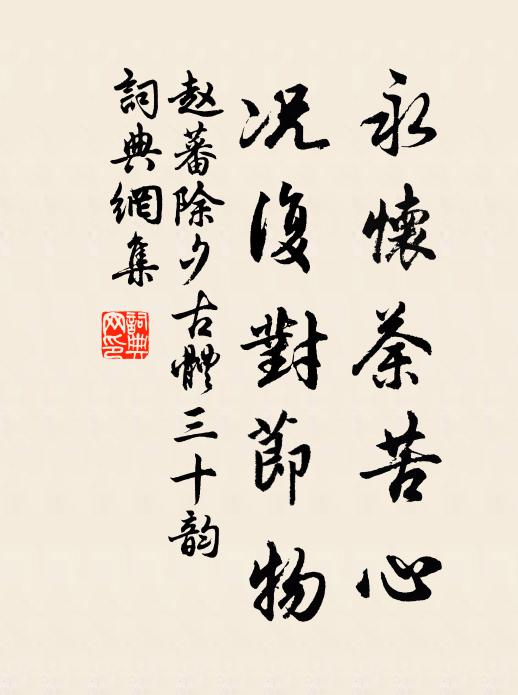 永懷荼苦心
况復對節物
赵蕃除夕古體三十韵
詞典網集
詞典
网印